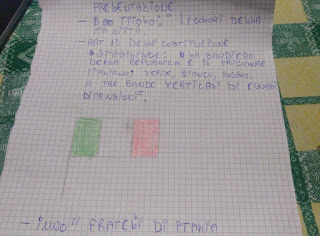 PRESENTAZIONE
- " I COLORI DELLA
MIA CITTÀ
- ART 12 DELLA COSTITUZIONE
LA BANDIERA
DELLA REPUBBLICA È IL TRICOLORE
ITALIANO: VERDE, BIANCO, ROSSO,
A TRE BANDE VERTICALI DI EGUALI
DIMENSIONI".
- INNO " FRATELLI DI ITALIA